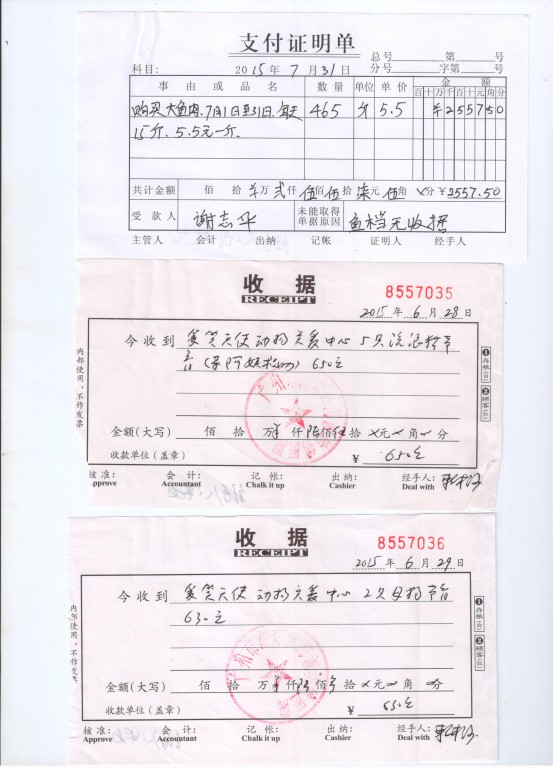 支付证明单
总号 第 号
科目: 2015年7月31日 分号 字第 号
事由或品名 数量 单位 单价 金额
百十万千百十元角分
购买大鱼肉.7月1日至31日.每天 465 斤 5.5 ¥255750
15斤.5.5元一斤.
共计金额 佰 拾 万贰仟伍佰伍拾柒元伍角 分 ¥2557.50
受款人 谢志华 未能取得单据原因 鱼档无收据
主管人 会计 出纳 记帐 证明人 经手人
收据
RECEIPT
8557035
2015年6月28日
今收到 爱笑天使动物关爱中心5只流浪猫节
育 650元
金额(大写) 佰 拾 万 仟陆佰伍拾 元 角 分
收款单位(盖章) ¥ 650元
核准: 会计: 记帐: 出纳: 经手人:
Approve Accountant Chalk it up Cashier Deal with
内部使用，不作发票
①存根(白)
②顾客(红)
收据
RECEIPT
8557036
2015年6月29日
今收到 爱笑天使动物关爱中心2只母狗节育
630元
金额(大写) 佰 拾 万 仟陆佰 拾 元 角 分
收款单位(盖章) ¥
核准: 会计: 记帐: 出纳: 经手人:
Approve Accountant Chalk it up Cashier Deal with
内部使用，不作发票
①存根(白)
②顾客(红)